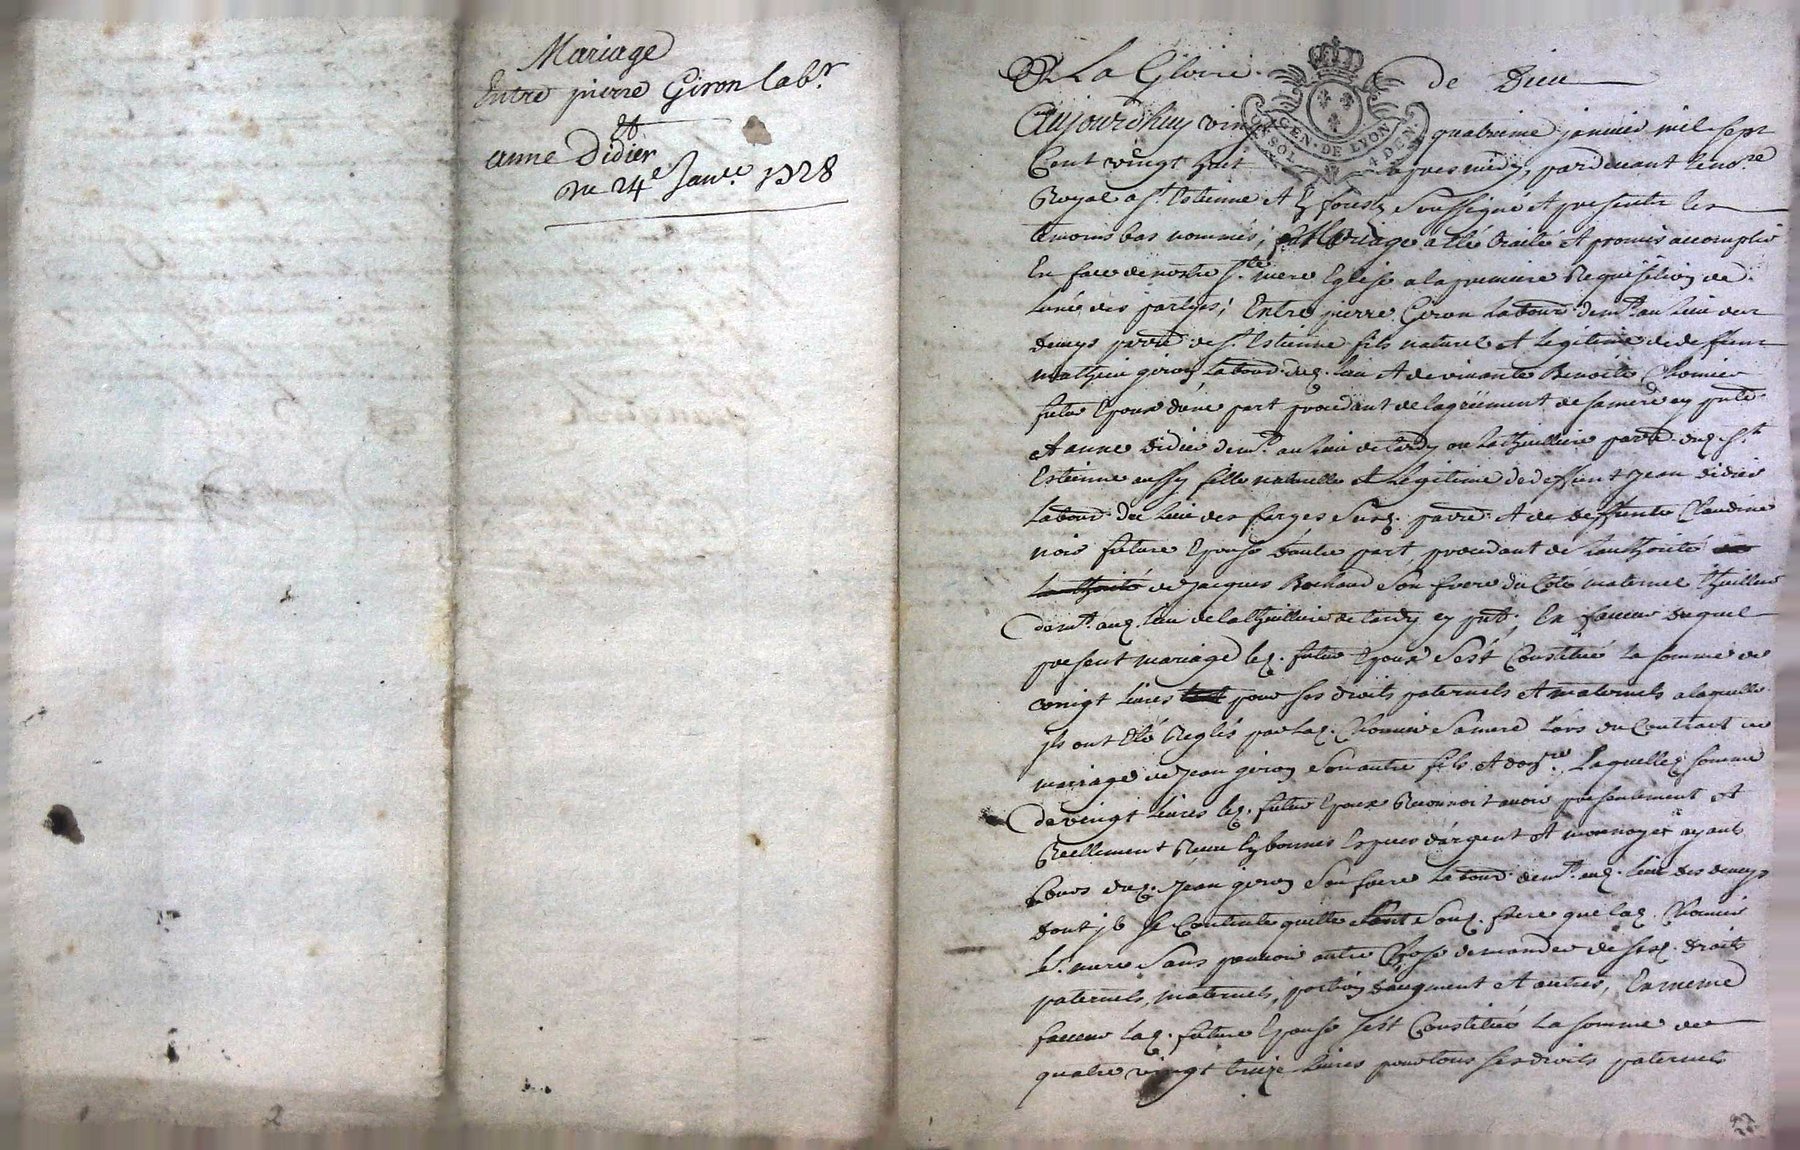 Mariage
Entre pierre Giron labr.
Et
anne Didier
Du 24e Janr. 1728
2
A La Gloire de Dieu
GEN. DE LYON
SOL. 4 DEN.
Aujourdhuy vingt quatrieme janvier mil sept
Cent vingt huit apres midy, pardevant le nore
Royal a st Estienne et forest soussigné et presents les
temoins bas nommés, mariage a eté traité et promis accomplir
En face de nostre ste mere Eglise a la premiere Requisition de
lune des partyes; Entre pierre Giron labour demt au lieu des
deuays parre de st Estienne fils naturel et legitime de deffunt
mathieu giron labour dud. lieu et de vivante Benoite Chomier
futur Epoux dune part procedant de lagréement de sa mere cy pnte
et anne didier demt au lieu de tardy ou lathuilliere parre dud. st
Estienne aussy fille naturelle et legitime de deffunt jean didier
labour du lieu des farges susd. parre et de deffunte Claudine
noir future Epouse dautre part procedant de lauthorité
lauthorité de jacques Rochand son frere du Coté maternel thuillier
demt aud. lieu de lathuilliere de tardy cy pnt, En faveur duquel
present mariage led. futur Epoux sest Constitué la somme de
vingt livres pour ses droits paternels et maternels a laquelle
ils ont eté Reglés par lad. Chomier sa mere lors du Contract de
mariage de jean giron son autre fils et Laquelle somme
de vingt livres led. futur Epoux Reconnoit avoir presentement et
Reellement Receu En bonnes Especes dargent et monnoyes ayant
Cours dud. jean giron son frere labour demt aud. lieu des deuays
dont il se Contente quitte sond. frere que lad. Chomier
sa mere sans pouvoir autre Chose demander de sesd. droits
paternels, maternels, portion daugment et autres, En meme
faveur lad. future Epouse sest Constitué la somme de
quatre vingt treize livres pour tous ses droits paternels